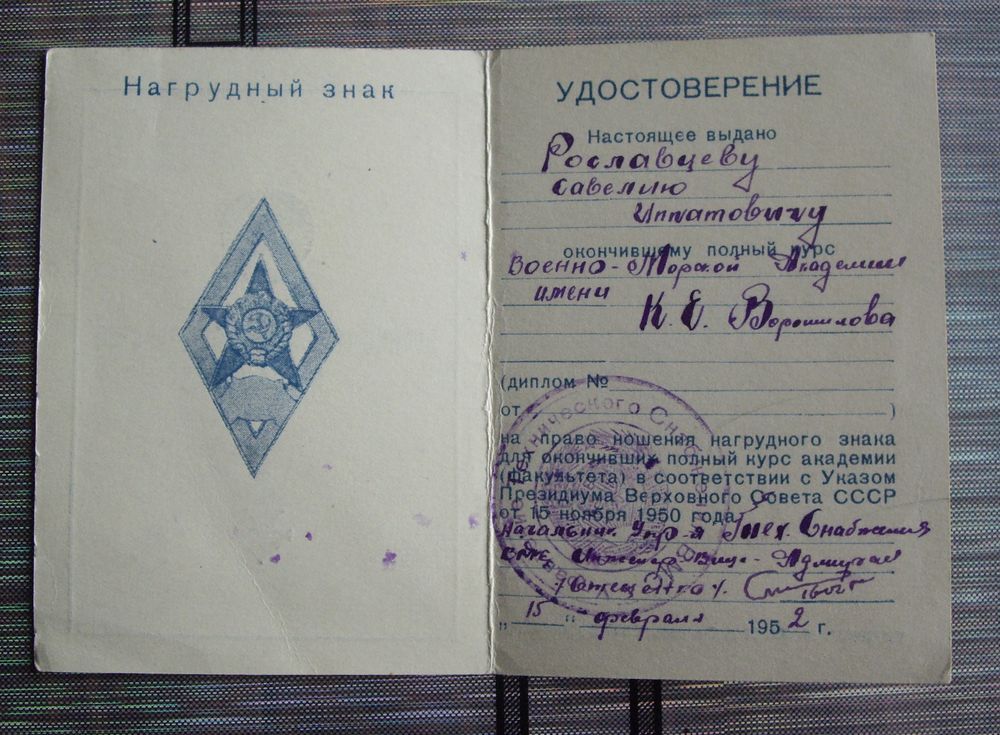 Нагрудный знак
УДОСТОВЕРЕНИЕ
Настоящее выдано
Рославцеву
Савелию
Ипатовичу
окончившему полный курс
Военно-Морской Академии
имени
К. Е. Ворошилова
(диплом №
от )
на право ношения нагрудного знака
для окончивших полный курс академии
(факультета) в соответствии с Указом
Президиума Верховного Совета СССР
от 15 ноября 1950 года
Начальник Упр-я Тех. Снабжения
Инженер Вице-Адмирал
„ 15 “ февраля 1952 г.
Технического